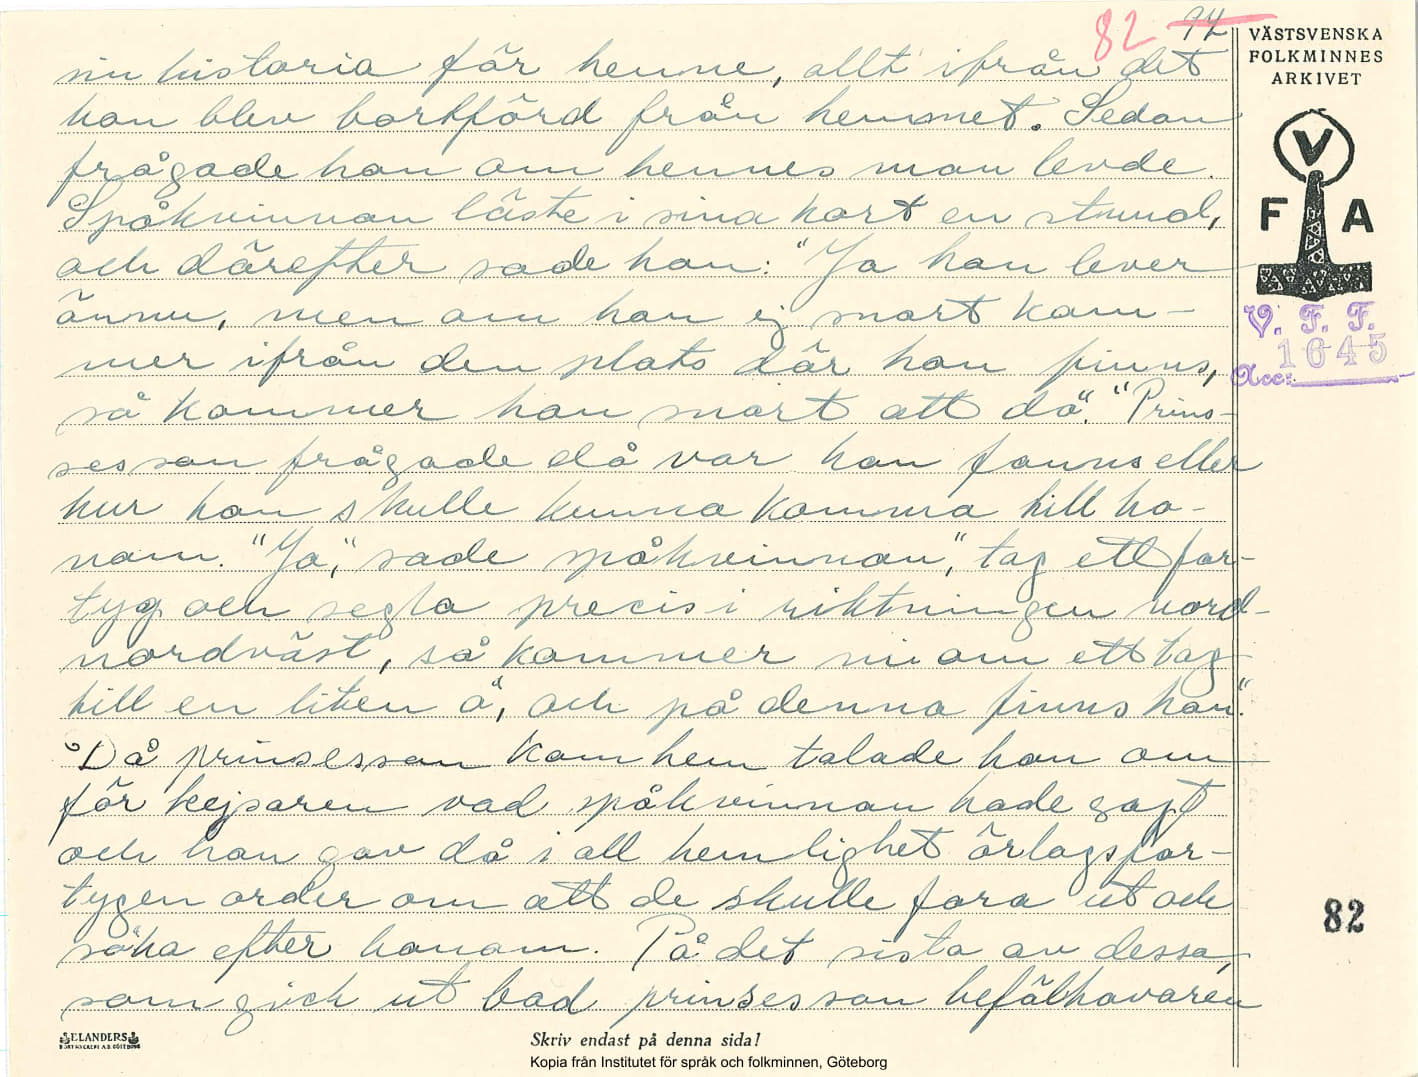 82 92
VÄSTSVENSKA
FOLKMINNES
ARKIVET
V
F A
V. F. F.
Acc: 1645
sin historia för henne, allt ifrån det
hon blev bortförd från hemmet. Sedan
frågade hon om hennes man levde.
Spåkvinnan läste i sina kort en stund,
och därefter sade hon: "Ja han lever
ännu, men om han ej snart kom-
mer ifrån den plats där han finns,
så kommer han snart att dö". "Prins-
sessan frågade då var han fanns eller
hur hon skulle kunna komma till ho-
nom. "Ja", sade spåkvinnan", tag ett far-
tyg och segla precis i riktningen nord-
nordväst, så kommer ni om ett tag
till en liten ö", och på denna finns han".
Då prinsessan kom hem talade hon om
för kejsaren vad spåkvinnan hade sagt
och han gav då i all hemlighet örlogsfar-
tygen order om att de skulle fara ut och
söka efter honom. På det sista av dessa,
som gick ut bad prinsessan befälhavaren
82
ELANDERS
BOKTRYCKERI A.B. GÖTEBORG
Skriv endast på denna sida!
Kopia från Institutet för språk och folkminnen, Göteborg